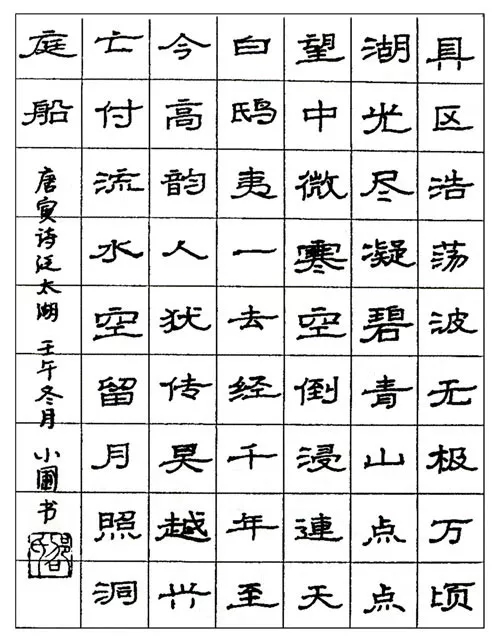 具区浩荡波无极万顷
湖光尽凝碧青山点点
望中微寒空倒浸連天
白鸱夷一去经千年至
今高韵人犹传吴越兴
亡付流水空留月照洞
庭船
唐寅诗泛太湖 壬午冬月 小圃书